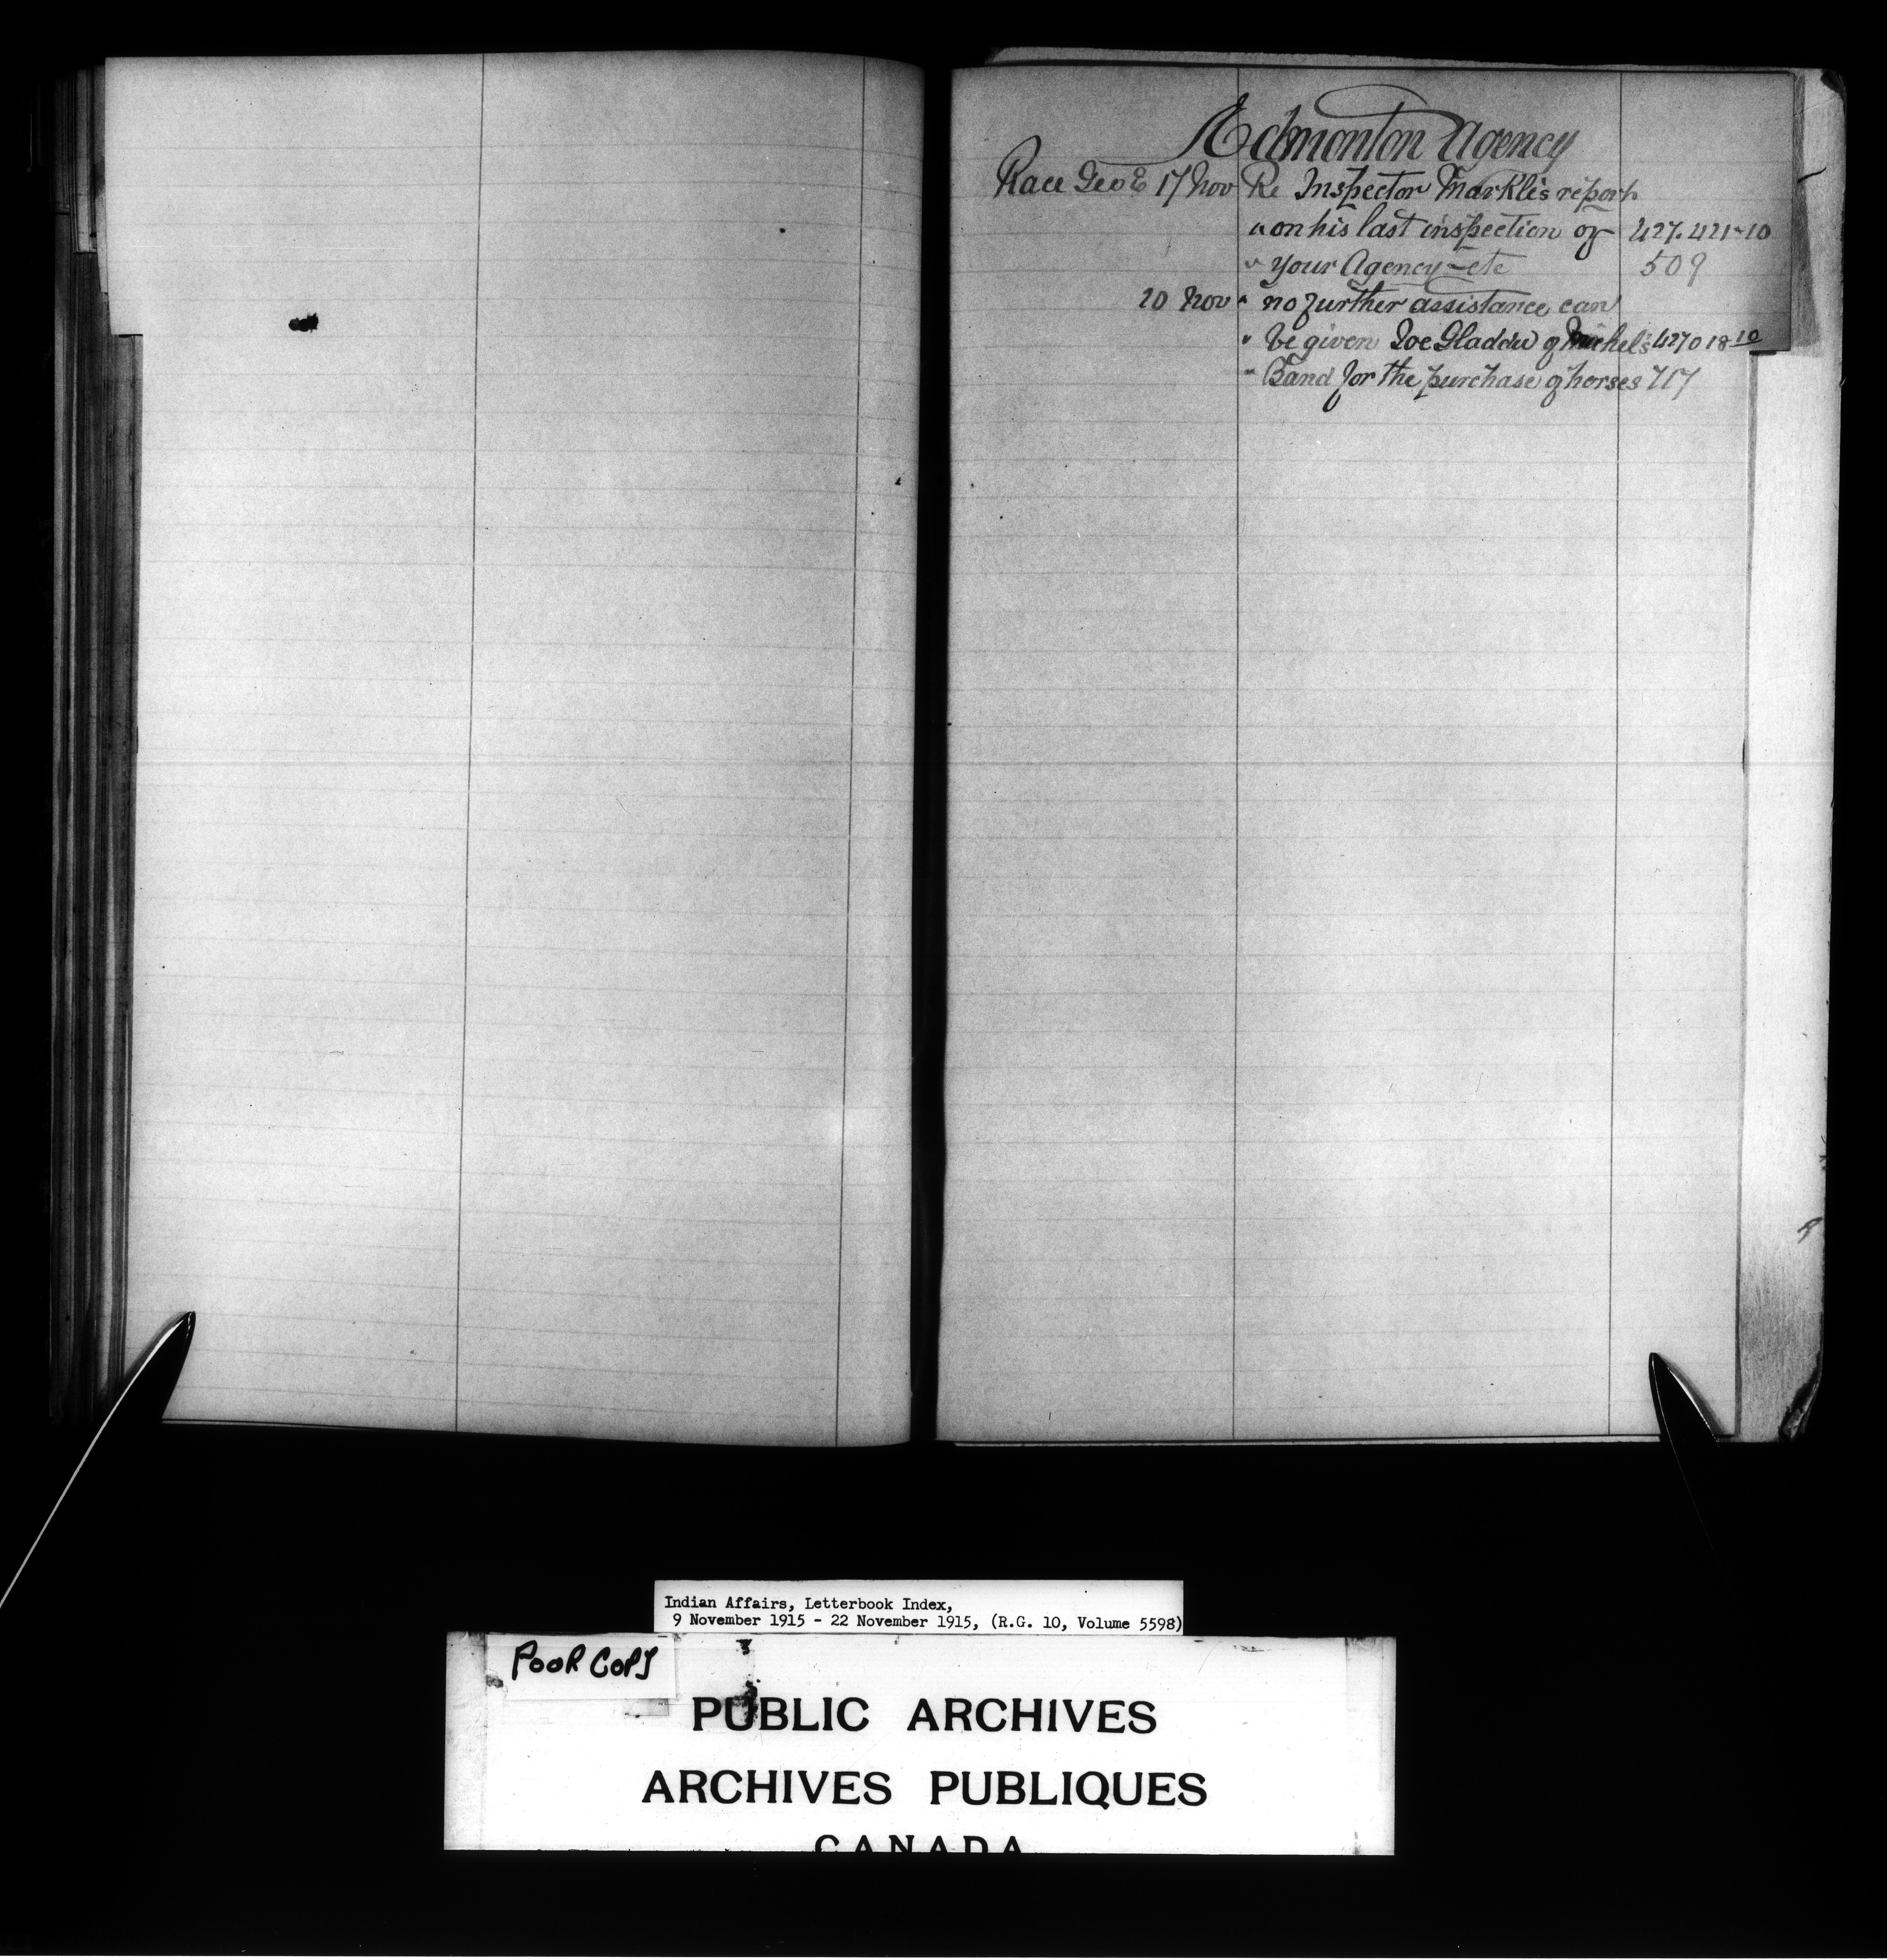 Edmonton Agency
Race Geo E 17 Nov Re Inspector Markle's report
" on his last inspection of 427.421-10
" your Agency - etc 509
20 Nov " no further assistance can
" be given Joe Gladdu of Michel's 427018-10
" Band for the purchase of horses 717
Indian Affairs, Letterbook Index,
9 November 1915 - 22 November 1915, (R.G. 10, Volume 5598)
POOR COPY
PUBLIC ARCHIVES
ARCHIVES PUBLIQUES
CANADA